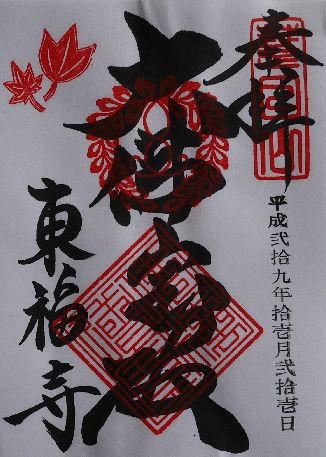 奉拝
平成弐拾九年拾壱月弐拾壱日
大佛寳殿
東福寺